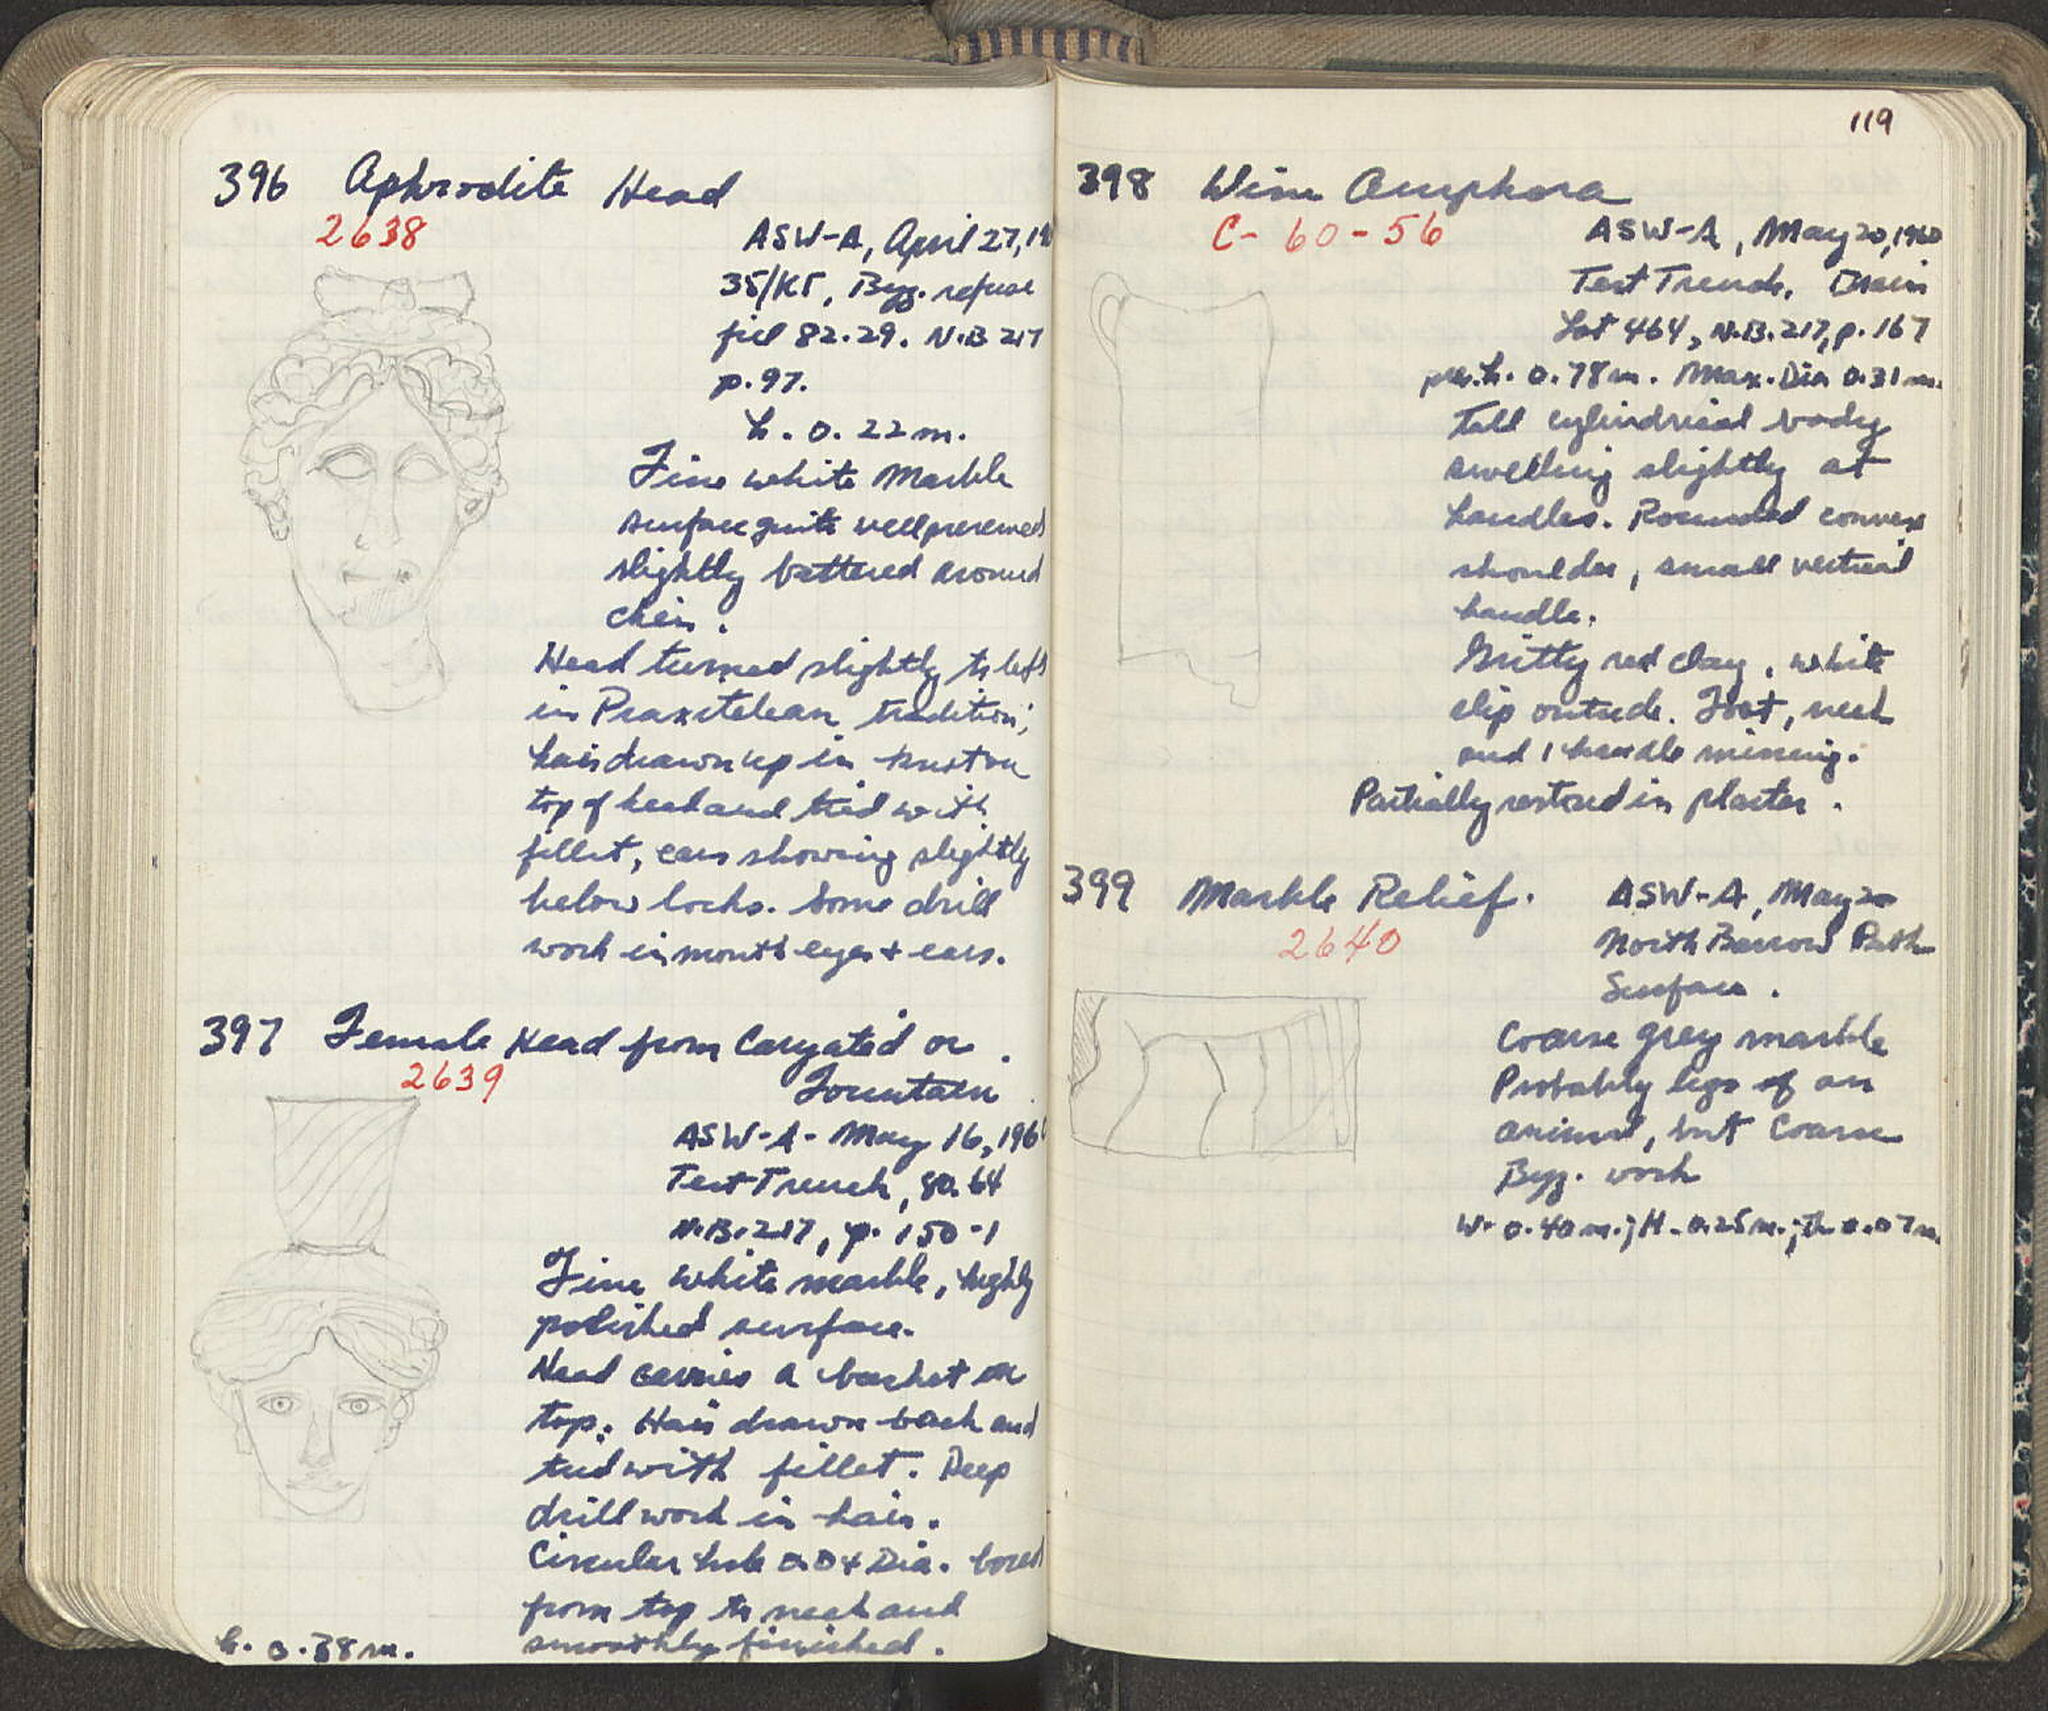 396 Aphrodite Head
2638
ASW-A, April 27, 19
35/KΓ, Byz. refuse
fill 82.29. N.B 217
p. 97.
h. 0.22 m.
Fine white Marble
surface quite well preserved
slightly battered around
chin.
Head turned slightly to left
in Praxitelean tradition;
hair drawn up in knot on
top of head and tied with
fillet, ears showing slightly
below locks. Some drill
work in mouth eyes + ears.
397 Female Head from Caryatid or
Fountain
2639
ASW-A- May 16, 196
Test Trench, 80.64
N.B. 217, p. 150-1
Fine white marble, highly
polished surface.
Head carries a basket on
top. Hair drawn back and
tied with fillet. Deep
drill work in hair.
Circular hole 0.04 Dia. bored
from top to neck and
smoothly finished.
h. 0.38 m.
119
398 Wine Amphora
C-60-56
ASW-A, May 20, 1960
Test Trench. Drain
Lot 464, N.B. 217, p. 167
pres. h. 0.78 m. Max. Dia 0.31 m.
Tall cylindrical body
swelling slightly at
handles. Rounded convex
shoulder, small vertical
handle.
Gritty red clay, white
slip outside. Foot, neck
and 1 handle missing.
Partially restored in plaster.
399 Marble Relief.
2640
ASW-A, May 20
North Barrow Path
Surface.
Coarse grey marble
Probably legs of an
animal, but Coarse
Byz. work
W. 0.40 m.; H. 0.25 m.; Th 0.07 m.